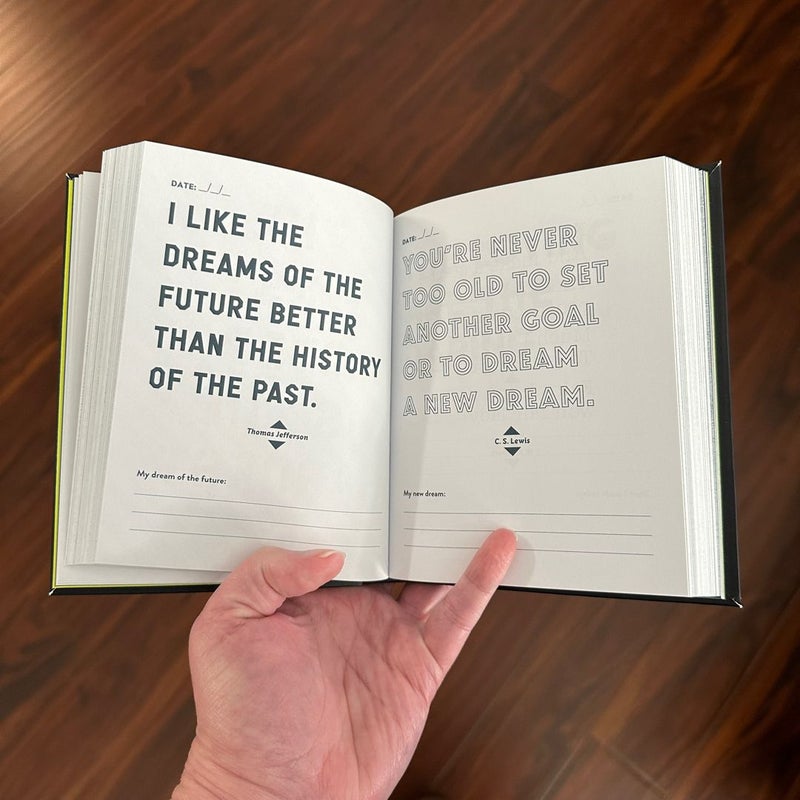 DATE: __/__/__
I LIKE THE
DREAMS OF THE
FUTURE BETTER
THAN THE HISTORY
OF THE PAST.
Thomas Jefferson
My dream of the future:
DATE: __/__/__
YOU'RE NEVER
TOO OLD TO SET
ANOTHER GOAL
OR TO DREAM
A NEW DREAM.
C. S. Lewis
My new dream: